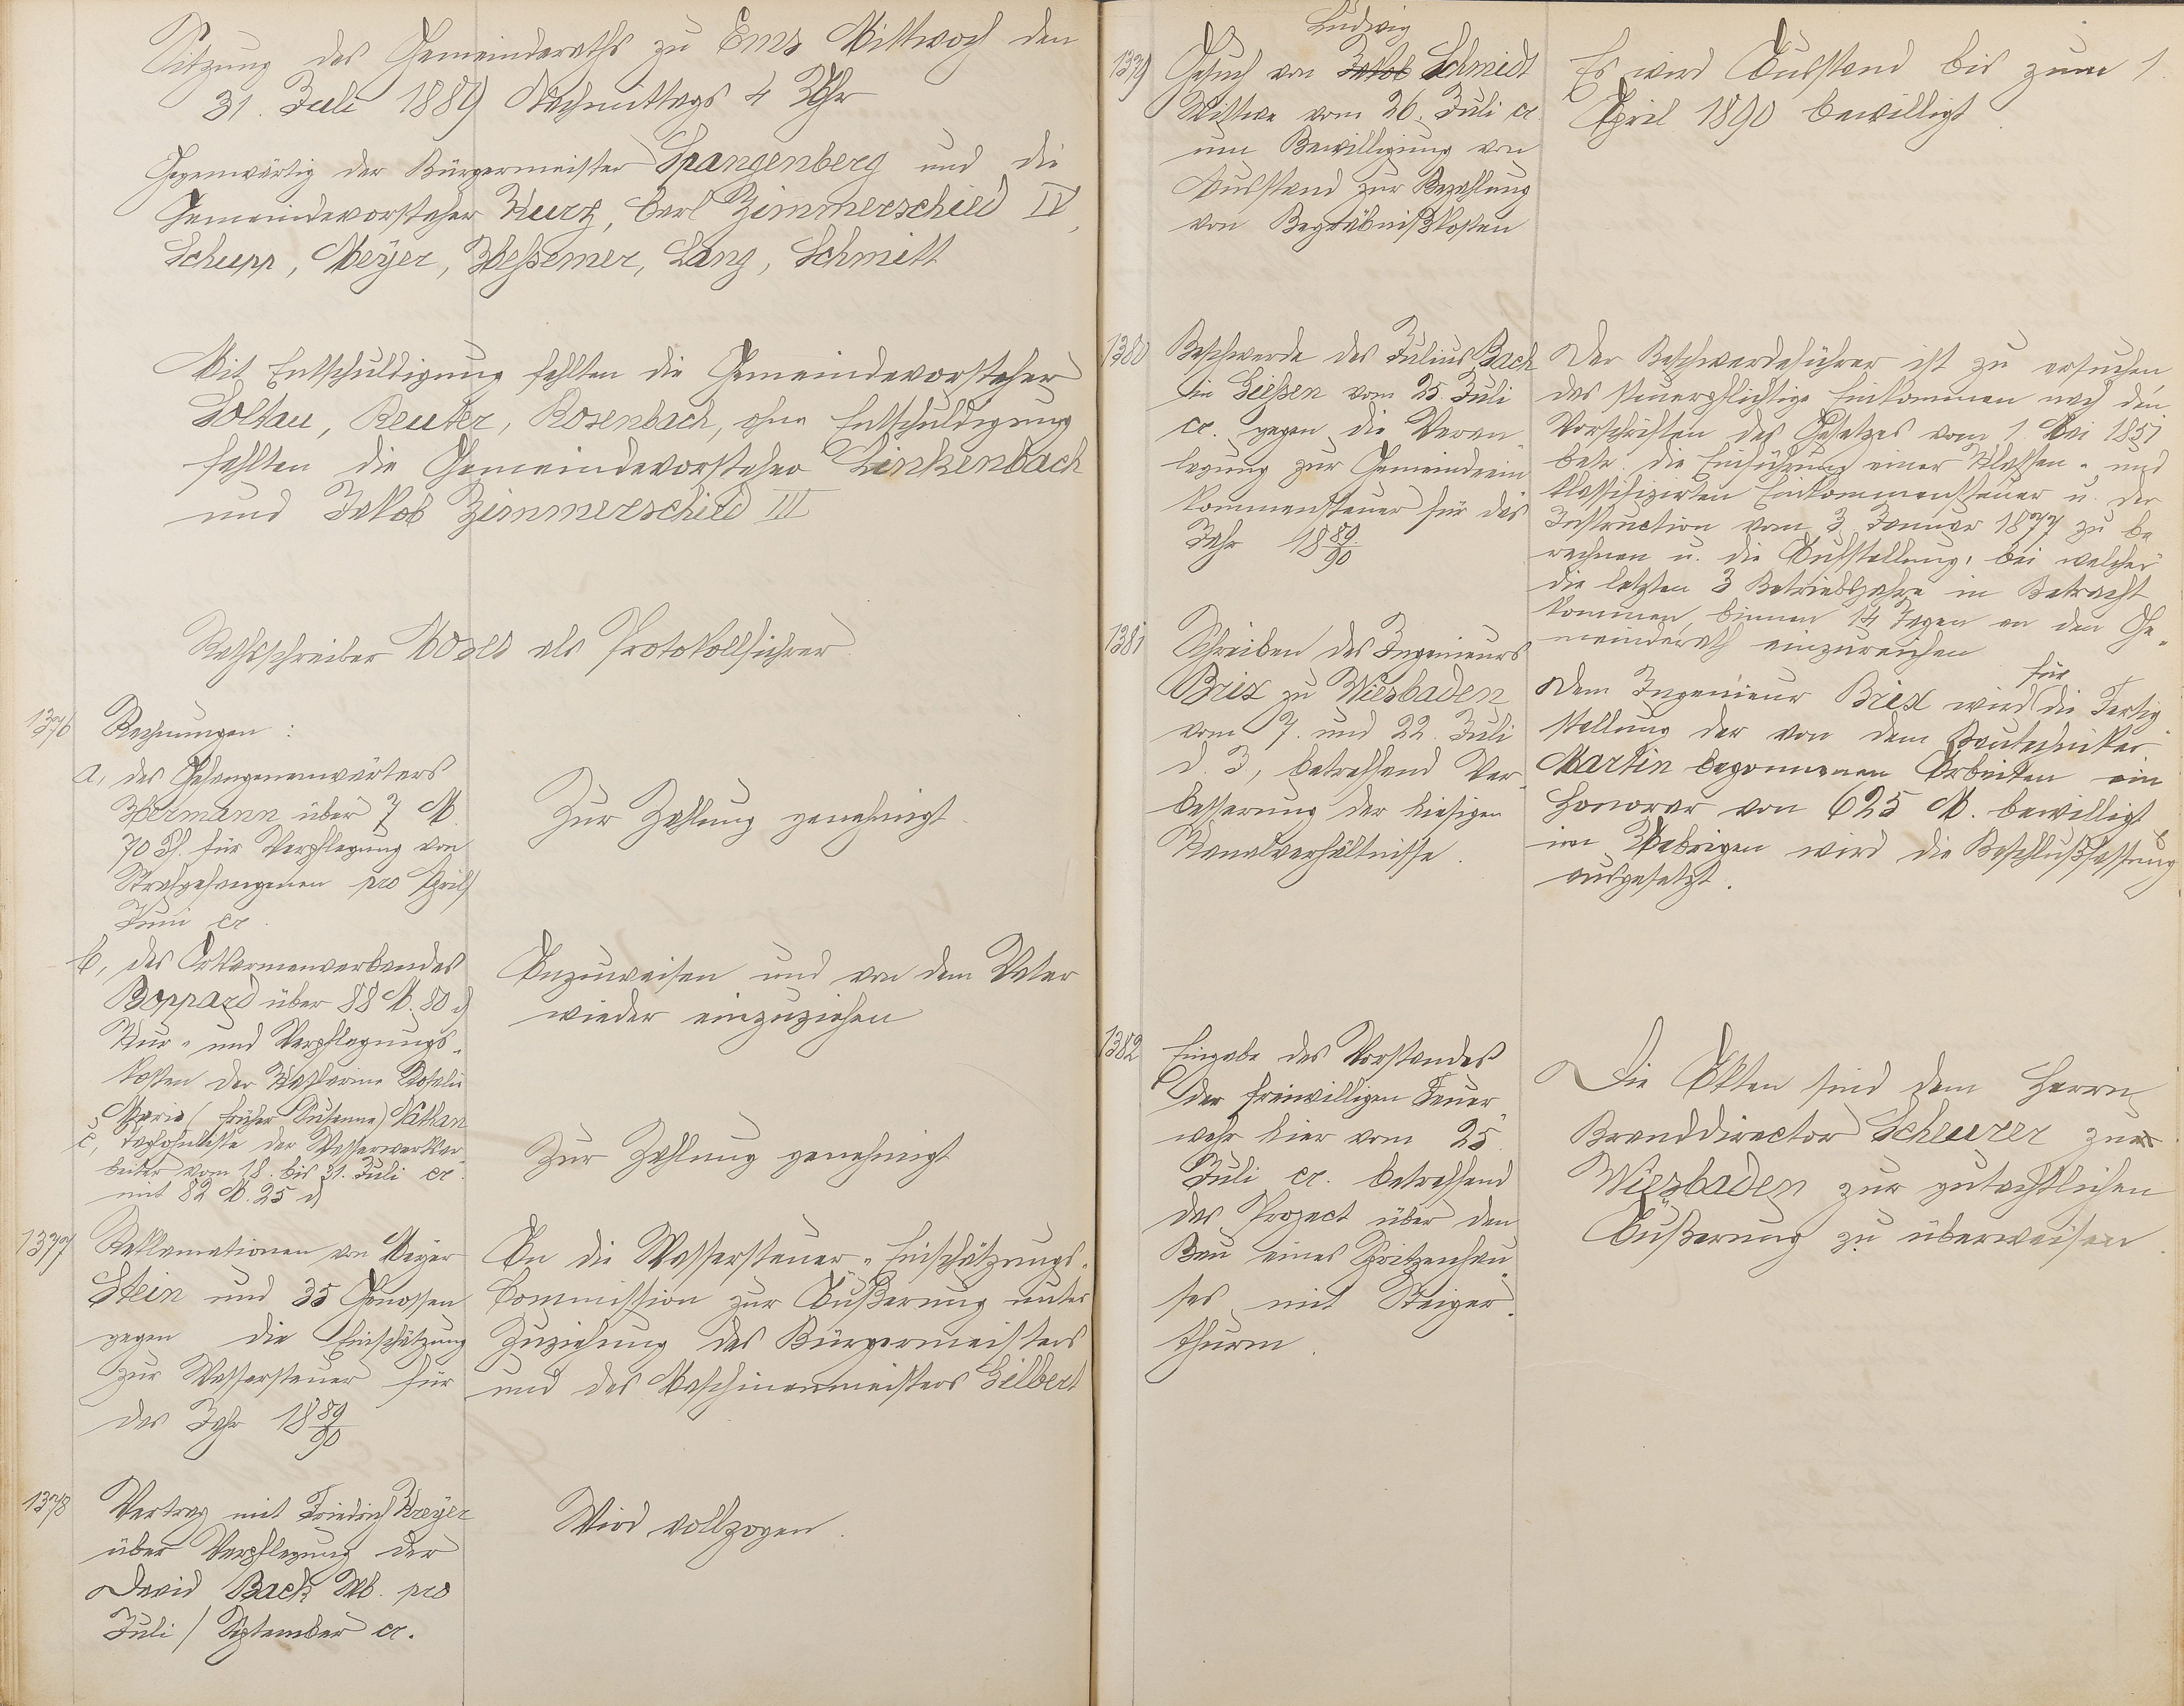 Sitzung des Gemeinderaths zu Ems Mittwoch den
31. Juli 1889 Nachmittags 4 Uhr
Gegenwärtig der Bürgermeister Spangenberg und die
Gemeindevorsteher Kurz, Carl Zimmerschied IV,
Schupp, Meyer, Heßemer, Lang, Schmitt
Mit Entschuldigung fehlten die Gemeindevorsteher
Soltau, Reuter, Rosenbach, ohne Entschuldigung
fehlten die Gemeindevorsteher Linkenbach
und Jakob Zimmerschied III
Rathsschreiber als Protokollführer.
1376 Rechnungen :
a, des Gefangenenwärters
Hermann über 7 M
70 Pf. für Verpflegung von
Strafgefangenen pro April/
Juni cr.
Zur Zahlung genehmigt.
b, des Ortsarmenverbandes
Boppard über 88 M. 80 d
Kur- und Verpflegungs-
kosten der Katharine Rosalie
Maria (früher Susanna) Nathan
Anzuweisen und von dem Vater
wieder einzuziehen
c, Taglohnliste der Wasserwerksar-
beiter vom 18. bis 31. Juli cr.
mit 82 M. 25 d
Zur Zahlung genehmigt
1377 Reklamationen von Meyer
Stein und 35 Genossen
gegen die Einschätzung
zur Wassersteuer für
das Jahr 1889/90
An die Wassersteuer-Einschätzungs-
Commission zur Äußerung unter
Zuziehung des Bürgermeisters
und des Maschinenmeisters Gilbert
1378 Vertrag mit Friedrich Kreyer
über Verpflegung der
David Back Wb. pro
Juli / September cr.
Wird vollzogen.
Ludwig
1379 Gesuch von Jakob Schmidt
Wittwe vom 26. Juli cr.
um Bewilligung von
Ausstand zur Bezahlung
von Begräbnißkosten
Es wird Ausstand bis zum 1.
April 1890 bewilligt
1380 Beschwerde des Julius Bach
in Gießen vom 25. Juli
cr. gegen die Veran-
lagung zur Gemeindeein-
kommensteuer für das
Jahr 1889/90
Der Beschwerdeführer ist zu ersuchen,
das steuerpflichtige Einkommen nach den
Vorschriften des Gesetzes vom 1. Mai 1851
betr. die Einführung einer Klassen- und
klassifizirten Einkommensteuer u. der
Instruction vom 3. Januar 1877 zu be-
rechnen u. die Aufstellung, bei welcher
die letzten 3 Betriebsjahre in Betracht
kommen, binnen 14 Tagen an den Ge-
meinderath einzureichen
1381 Schreiben des Ingenieurs
Brix zu Wiesbaden
vom 7. und 22. Juli
d. J, betreffend Ver-
besserung der hiesigen
Kanalverhältnisse.
für
Dem Ingenieur Brix wird die Fertig-
stellung der von dem Bautechniker
Martin begonnenen Arbeiten ein
Honorar von 625 M. bewilligt
im Uebrigen wird die Beschlußfassung
ausgesetzt.
1382 Eingabe des Vorstandes
der freiwilligen Feuer-
wehr hier vom 25.
Juli cr. betreffend
das Project über den
Bau eines Spritzenhau-
ses mit Steiger-
thurm.
Die Akten sind dem Herrn
Branddirector Scheurer zu
Wiesbaden zur gutachtlichen
Äußerung zu überweisen.